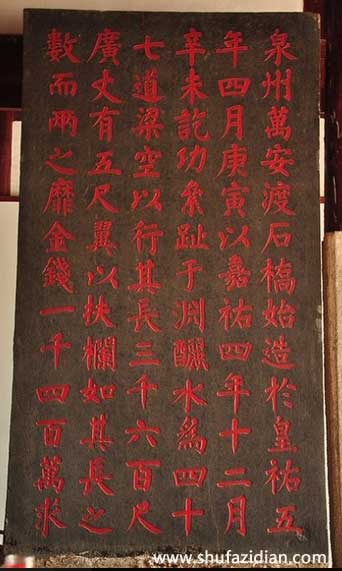 泉州萬安渡石橋始造於皇祐五
年四月庚寅以嘉祐四年十二月
辛未訖功絫趾于淵釃水爲四十
七道梁空以行其長三千六百尺
廣丈有五尺翼以扶欄如其長之
數而兩之靡金錢一千四百萬求
www.shufazidian.com